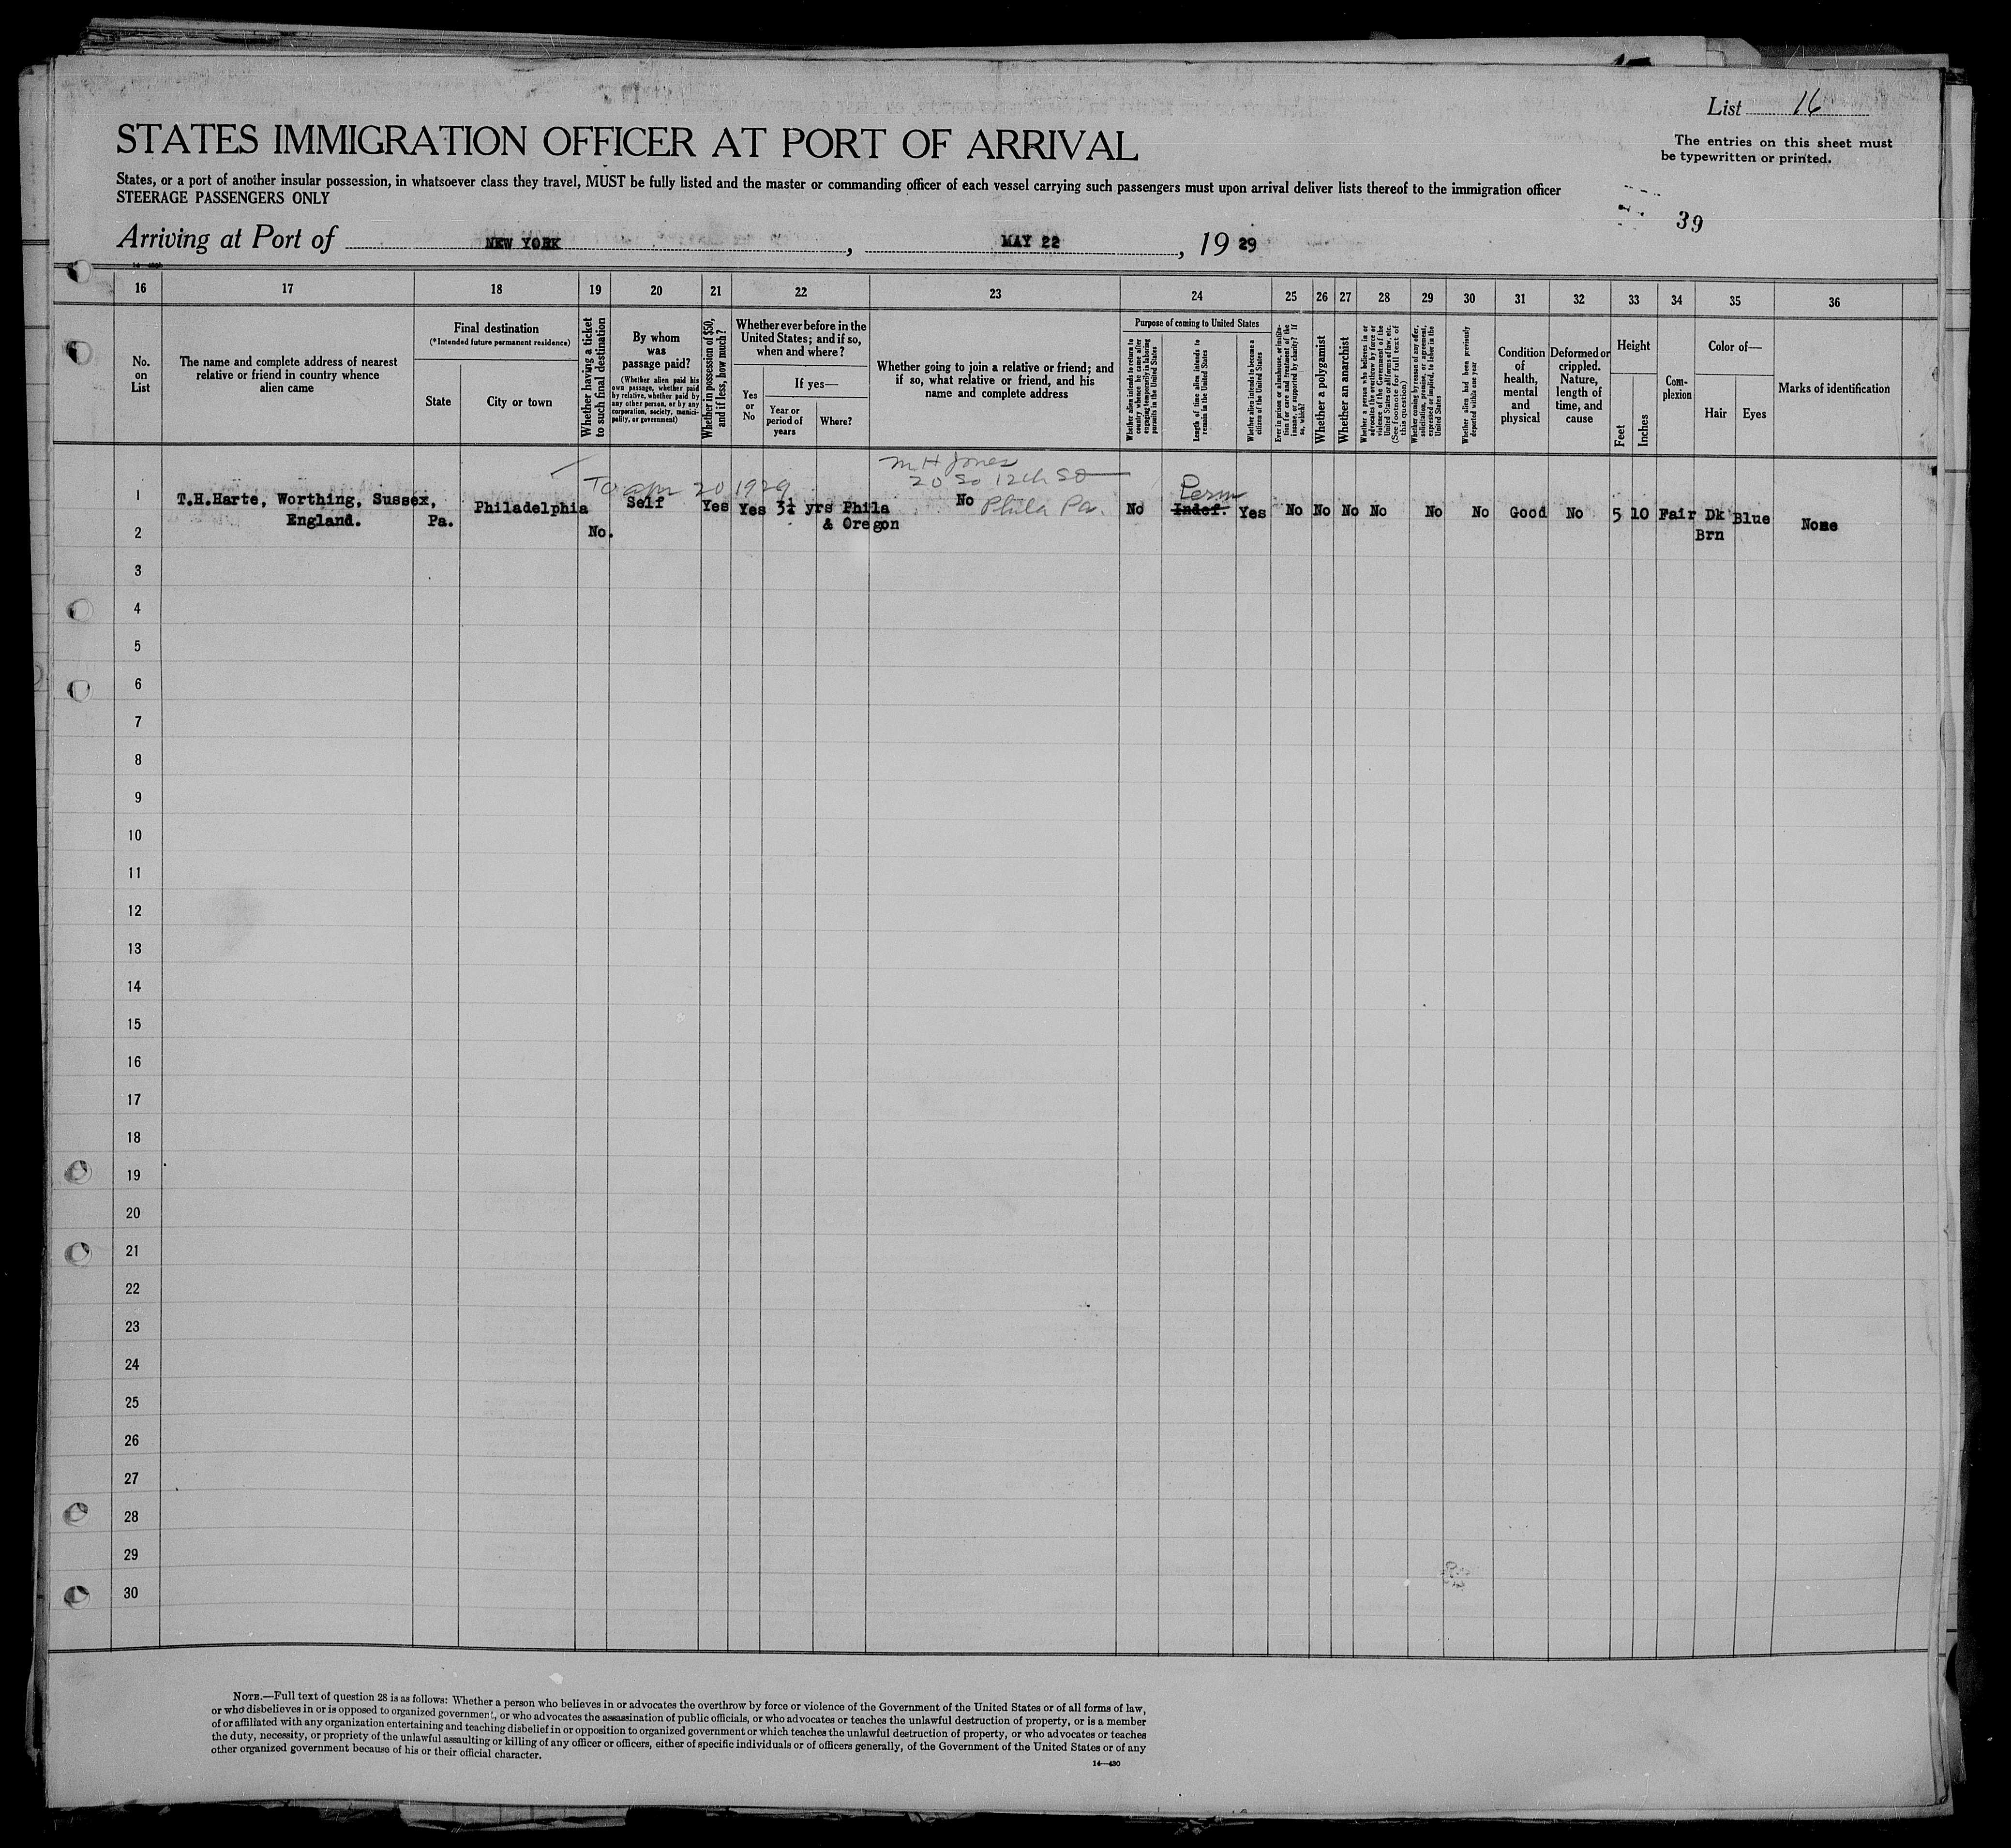 List 16
The entries on this sheet must
be typewritten or printed.
STATES IMMIGRATION OFFICER AT PORT OF ARRIVAL
States, or a port of another insular possession, in whatsoever class they travel, MUST be fully listed and the master or commanding officer of each vessel carrying such passengers must upon arrival deliver lists thereof to the immigration officer
STEERAGE PASSENGERS ONLY
39
Arriving at Port of NEW YORK, MAY 22, 19 29
16 17 18 19 20 21 22 23 24 25 26 27 28 29 30 31 32 33 34 35 36
No.
on
List
The name and complete address of nearest
relative or friend in country whence
alien came
Final destination
(*Intended future permanent residence)
State
City or town
Whether having a ticket
to such final destination
By whom
was
passage paid?
(Whether alien paid his
own passage, whether paid
by relative, whether paid by
any other person, or by any
corporation, society, munici-
pality, or government)
Whether in possession of $50,
and if less, how much?
Whether ever before in the
United States; and if so,
when and where?
Yes
or
No
If yes—
Year or
period of
years
Where?
Whether going to join a relative or friend; and
if so, what relative or friend, and his
name and complete address
Purpose of coming to United States
Whether alien intends to return to
country whence he came after
engaging temporarily in laboring
pursuits in the United States
Length of time alien intends to
remain in the United States
Whether alien intends to become a
citizen of the United States
Ever in prison or almshouse, or institu-
tion for care and treatment of the
insane, or supported by charity? If
so, which?
Whether a polygamist
Whether an anarchist
Whether a person who believes in or
advocates the overthrow by force or
violence of the Government of the
United States or all forms of law, etc.
(See footnote for full text of
this question)
Whether coming by reason of any offer,
solicitation, promise, or agreement,
expressed or implied, to labor in the
United States
Whether alien had been previously
deported within one year
Condition
of
health,
mental
and
physical
Deformed or
crippled.
Nature,
length of
time, and
cause
Height
Feet
Inches
Com-
plexion
Color of—
Hair
Eyes
Marks of identification
M H Jones
20 So 12th St
To Apr 20 1929
Perm
1 T.H.Harte, Worthing, Sussex, Philadelphia Self Yes Yes 3½ yrs Phila No Phila Pa. No Indef. Yes No No No No No No Good No 5 10 Fair Dk Blue None
England. Pa. & Oregon Brn
2 No.
3
4
5
6
7
8
9
10
11
12
13
14
15
16
17
18
19
20
21
22
23
24
25
26
27
28
29
30
NOTE.—Full text of question 28 is as follows: Whether a person who believes in or advocates the overthrow by force or violence of the Government of the United States or of all forms of law,
or who disbelieves in or is opposed to organized government, or who advocates the assassination of public officials, or who advocates or teaches the unlawful destruction of property, or is a member
of or affiliated with any organization entertaining and teaching disbelief in or opposition to organized government or which teaches the unlawful destruction of property, or who advocates or teaches
the duty, necessity, or propriety of the unlawful assaulting or killing of any officer or officers, either of specific individuals or of officers generally, of the Government of the United States or of any
other organized government because of his or their official character.
14—480